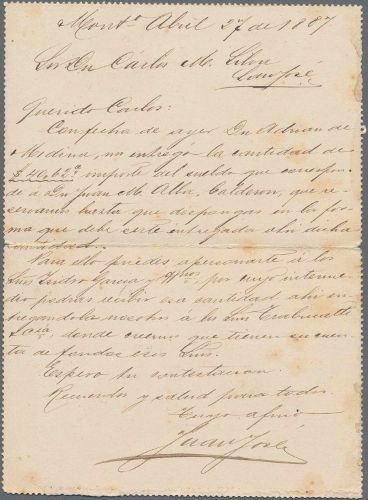 Montº Abril 27 de 1887
Sor Dn Cárlos M.
San José
Querido Carlos:
Con fecha de ayer Dn Adrian de
Medina, me entregó la cantidad de
$ importe del sueldo que correspon-
de á Dn Juan M. Alba, Calderon, que re-
servamos hasta que dispongas en la for-
ma que debe serle entregada ahí dicha
cantidad.
Para ello puedes apersonarte á los
Sres Isidro Garcia y Hnos, por cuyo interme-
dio podras recibir esa cantidad ahi en-
tregandola nosotros á los Sres
donde creemos que tienen su cuen-
ta de fondos esos Sres.
Espero tu contestacion.
Recuerdos y salud para todos.
Tuyo afmo
Juan José